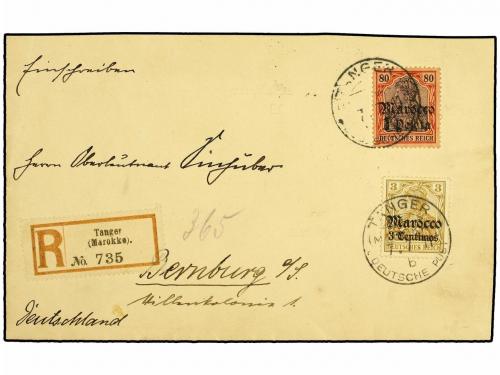 Einschreiben
TANGER
80 80
Marocco
1 Peseta
DEUTSCHES REICH
Herrn Oberleutnant Sinhuber
3 3
TANGER
Marocco
3 Centimos
DEUTSCHES REICH
b
DEUTSCHE PO
R
Tanger
(Marokko).
No. 735
365
Bernburg a/S.
Villenkolonie 1
Deutschland